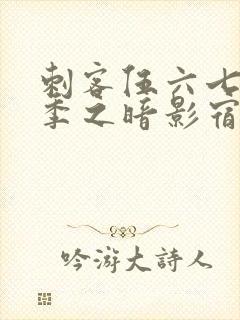 刺客伍六七
季之暗影宿
吟游大詩人